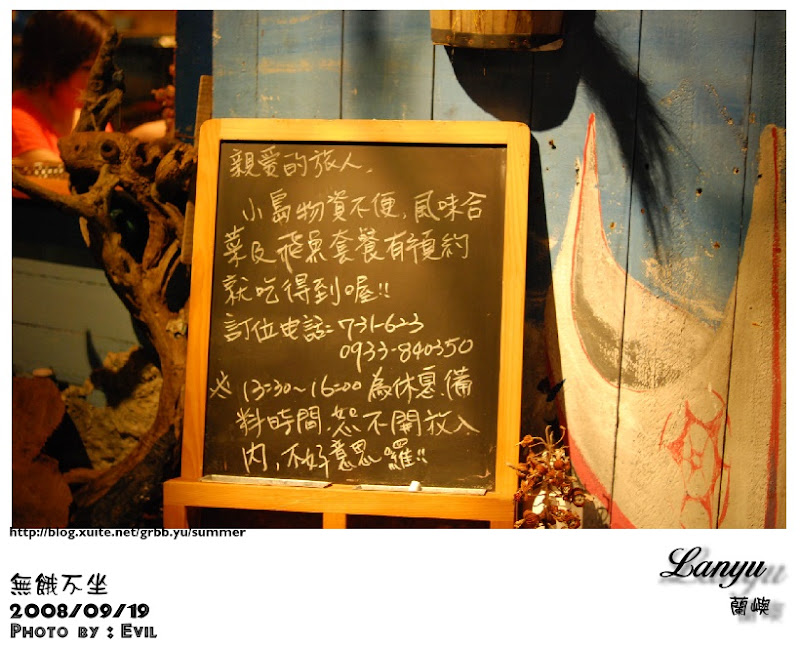 親愛的旅人,
小島物資不便,風味合
菜及飛魚套餐有預約
就吃得到喔!!
訂位电話:731-623
0933-840350
※ 13:30~16:00 為休息、備
料時間,恕不開放入
內,不好意思囉!!
http://blog.xuite.net/grbb.yu/summer
無餓不坐
2008/09/19
Photo by : Evil
Lanyu
蘭嶼